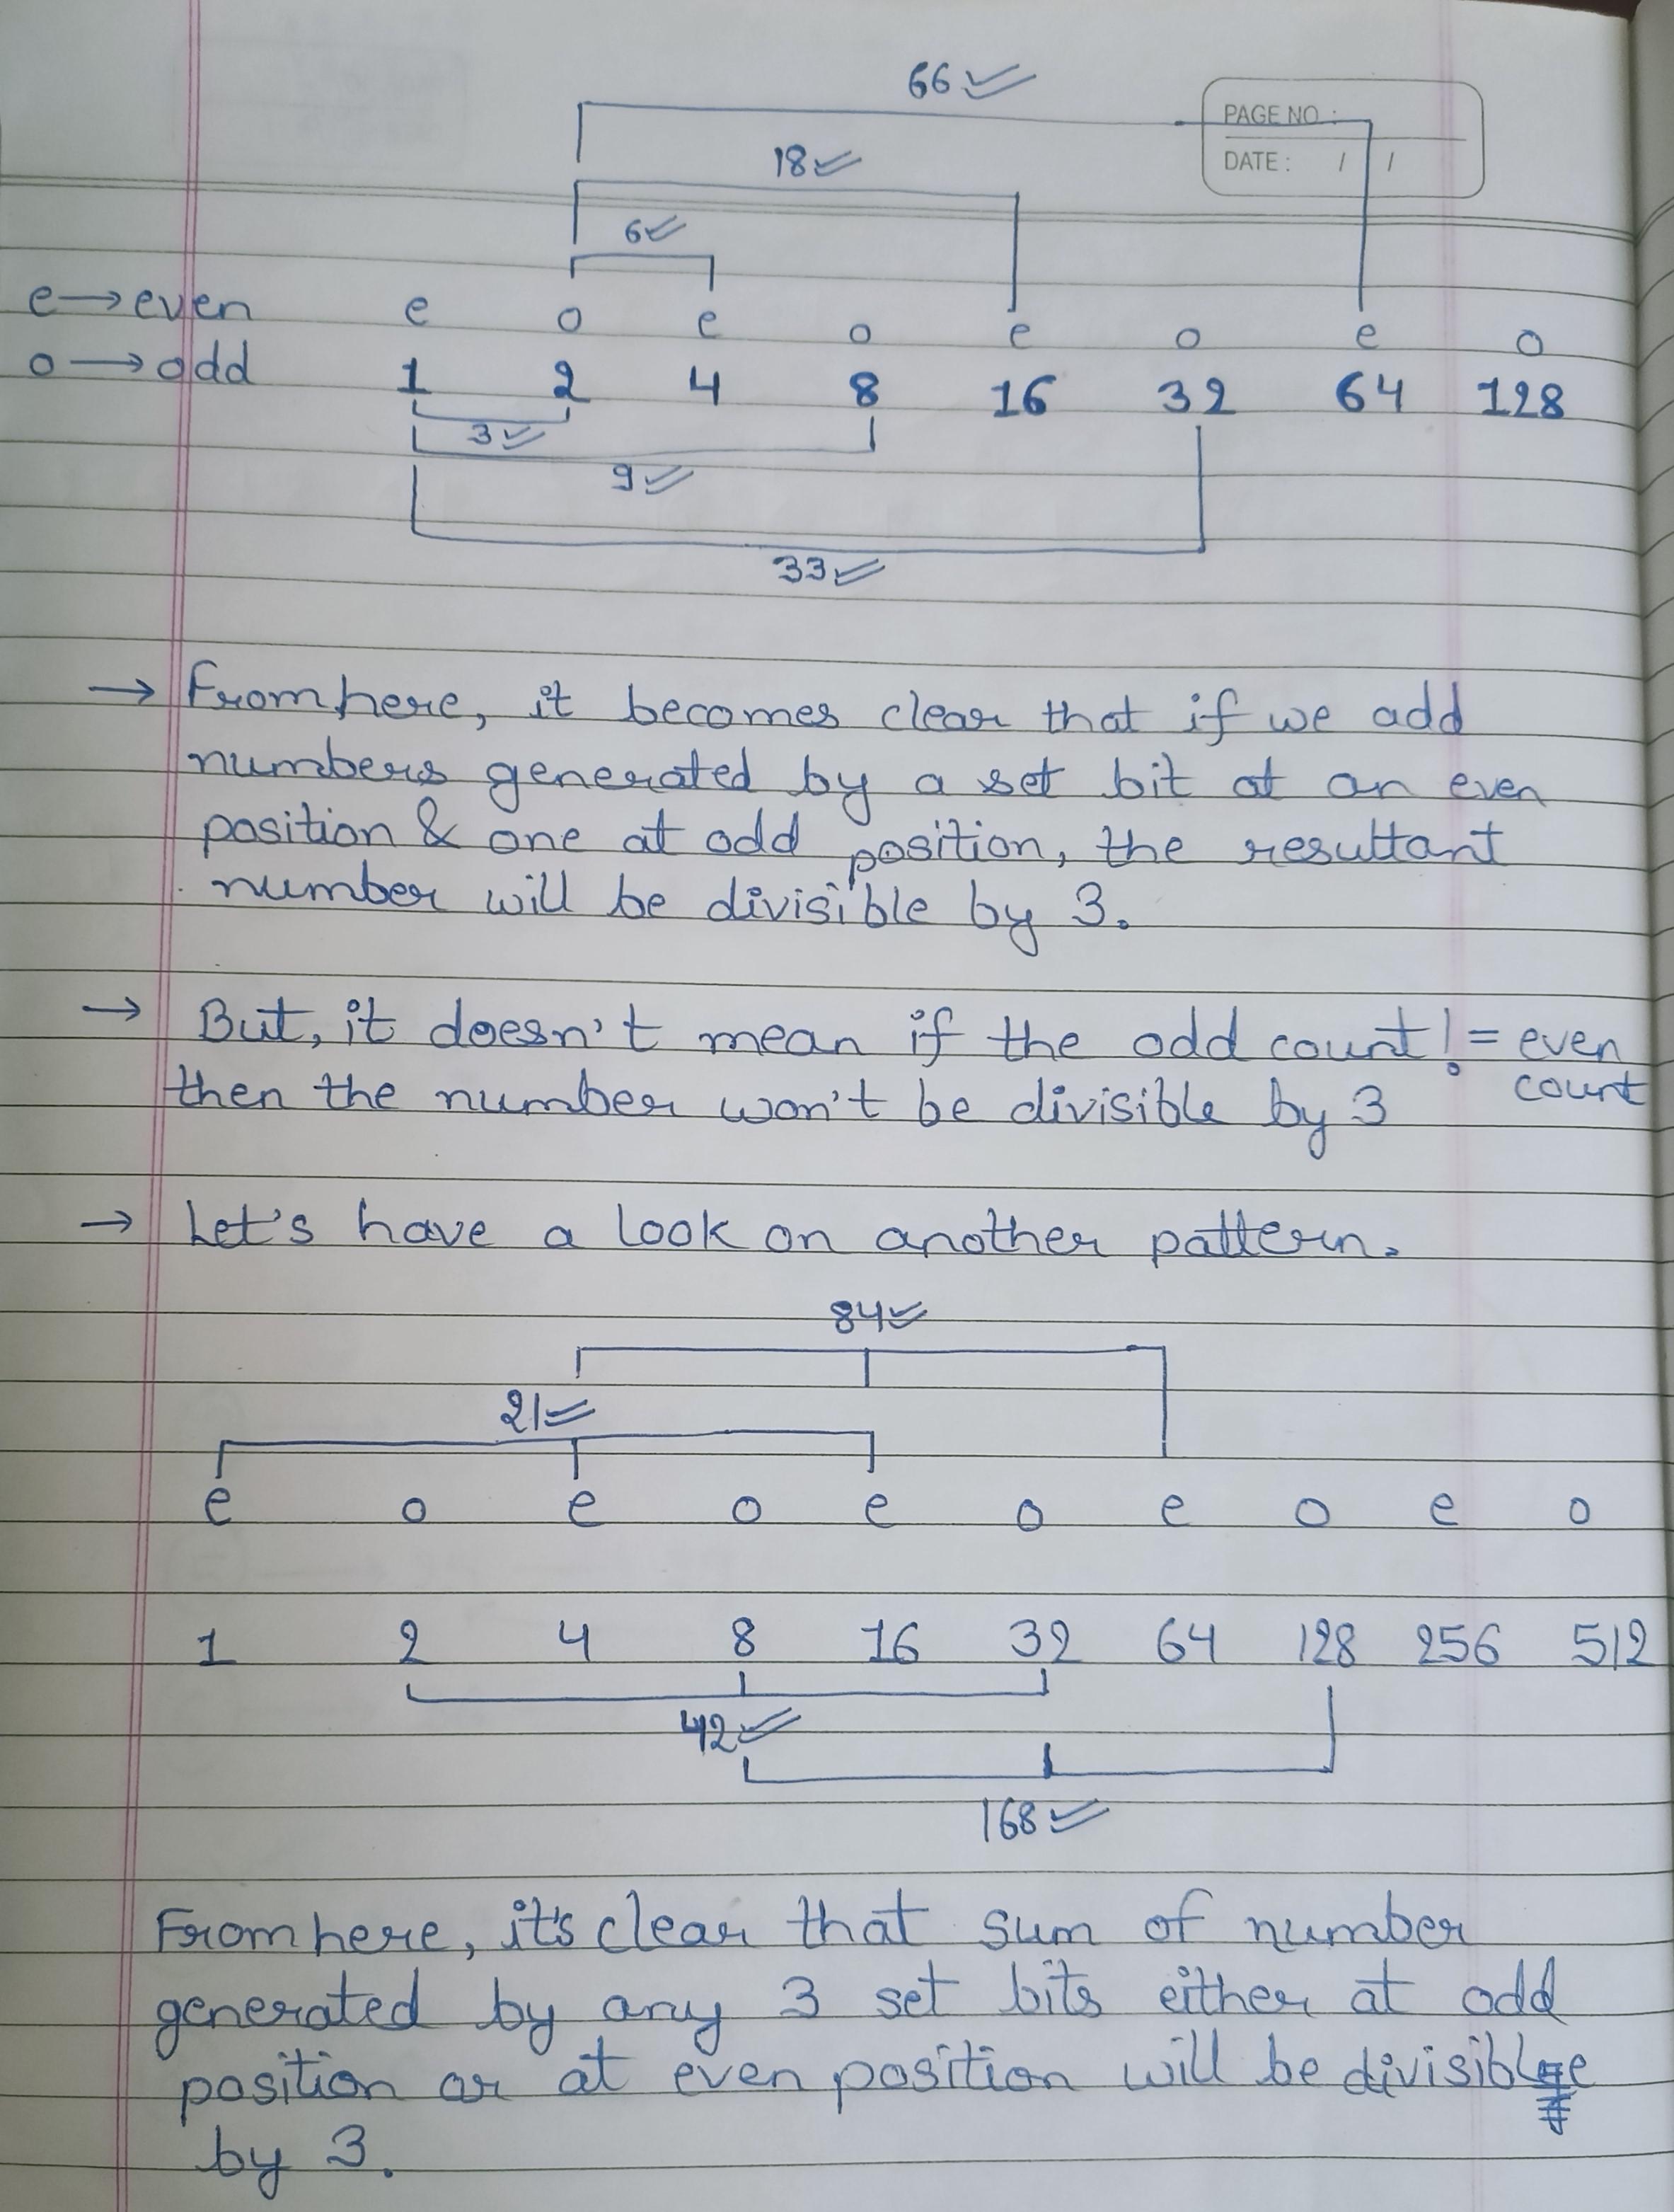 66
PAGE NO. :
18
DATE : / /
6
e → even e o e o e o e o
o → odd 1 2 4 8 16 32 64 128
3
9
33
→ From here, it becomes clear that if we add
numbers generated by a set bit at an even
position & one at odd position, the resultant
number will be divisible by 3.
→ But, it doesn't mean if the odd count != even
count
then the number won't be divisible by 3
→ Let's have a look on another pattern.
84
21
e o e o e o e o e o
1 2 4 8 16 32 64 128 256 512
42
168
From here, it's clear that sum of number
generated by any 3 set bits either at odd
position or at even position will be divisible
by 3.